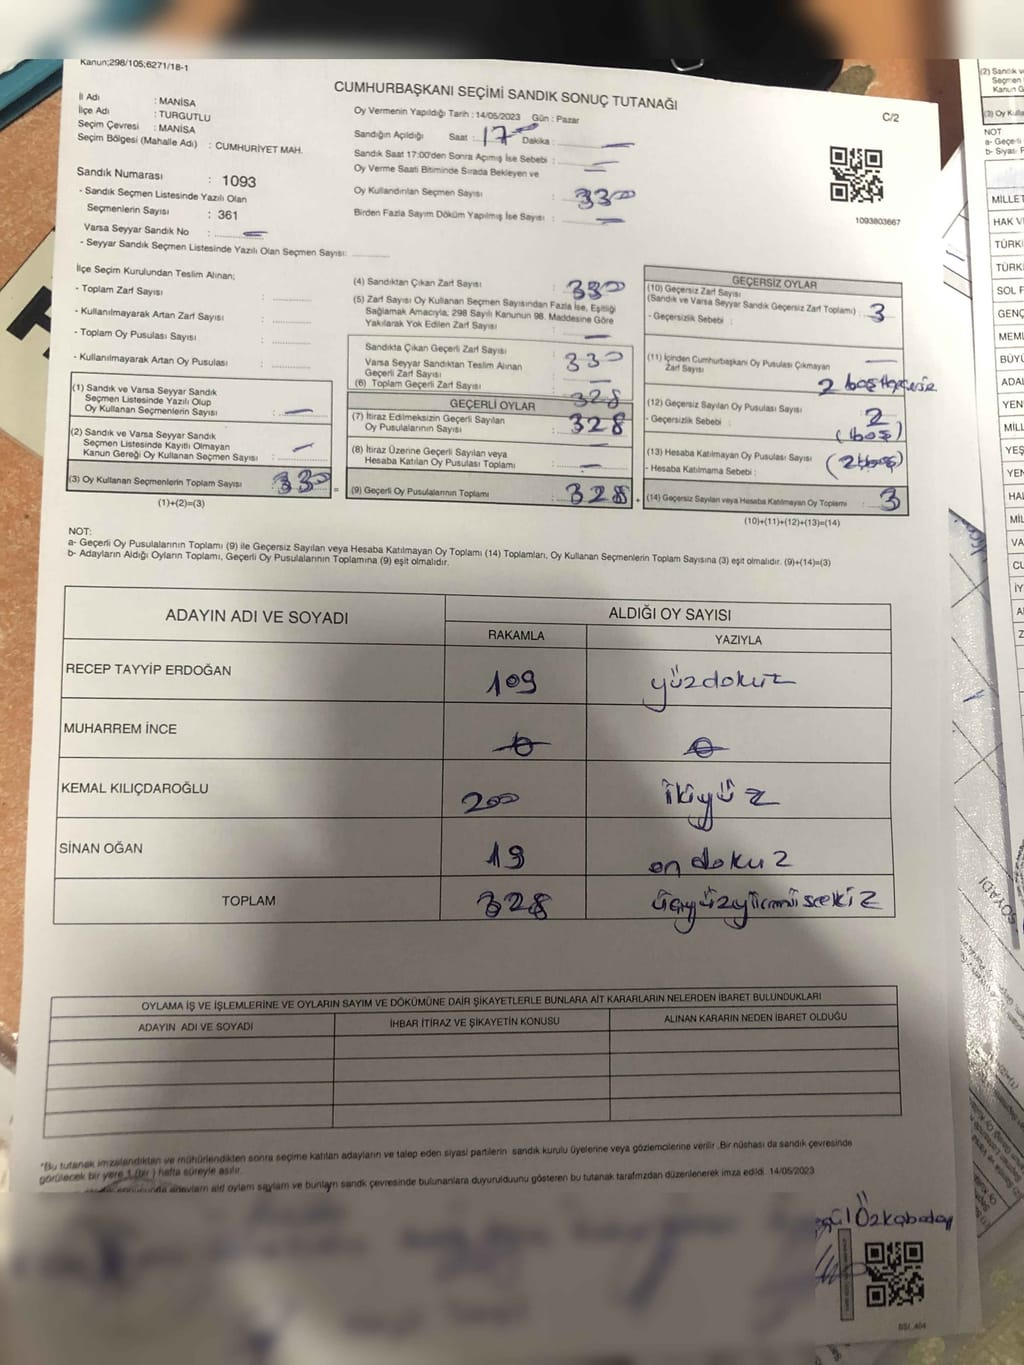 Kanun;298/105;6271/18-1
CUMHURBAŞKANI SEÇİMİ SANDIK SONUÇ TUTANAĞI
C/2
İl Adı : MANİSA
İlçe Adı : TURGUTLU
Seçim Çevresi : MANİSA
Seçim Bölgesi (Mahalle Adı) : CUMHURİYET MAH.
Sandık Numarası : 1093
- Sandık Seçmen Listesinde Yazılı Olan
Seçmenlerin Sayısı : 361
Varsa Seyyar Sandık No :
- Seyyar Sandık Seçmen Listesinde Yazılı Olan Seçmen Sayısı:
Oy Vermenin Yapıldığı Tarih : 14/05/2023 Gün : Pazar
Sandığın Açıldığı Saat : 17 Dakika :
Sandık Saat 17:00'den Sonra Açımış İse Sebebi :
Oy Verme Saati Bitiminde Sırada Bekleyen ve
Oy Kullandırılan Seçmen Sayısı : 330
Birden Fazla Sayım Döküm Yapılmış İse Sayısı :
1093803667
İlçe Seçim Kurulundan Teslim Alınan;
- Toplam Zarf Sayısı :
- Kullanılmayarak Artan Zarf Sayısı :
- Toplam Oy Pusulası Sayısı :
- Kullanılmayarak Artan Oy Pusulası :
(1) Sandık ve Varsa Seyyar Sandık
Seçmen Listesinde Yazılı Olup
Oy Kullanan Seçmenlerin Sayısı :
(2) Sandık ve Varsa Seyyar Sandık
Seçmen Listesinde Kayıtlı Olmayan
Kanun Gereği Oy Kullanan Seçmen Sayısı :
(3) Oy Kullanan Seçmenlerin Toplam Sayısı : 330
(1)+(2)=(3)
(4) Sandıktan Çıkan Zarf Sayısı : 330
(5) Zarf Sayısı Oy Kullanan Seçmen Sayısından Fazla İse, Eşitliği
Sağlamak Amacıyla, 298 Sayılı Kanunun 98. Maddesine Göre
Yakılarak Yok Edilen Zarf Sayısı :
Sandıkta Çıkan Geçerli Zarf Sayısı : 330
Varsa Seyyar Sandıktan Teslim Alınan
Geçerli Zarf Sayısı
(6) Toplam Geçerli Zarf Sayısı : 328
GEÇERLİ OYLAR
(7) İtiraz Edilmeksizin Geçerli Sayılan
Oy Pusulalarının Sayısı : 328
(8) İtiraz Üzerine Geçerli Sayılan veya
Hesaba Katılan Oy Pusulası Toplamı :
= (9) Geçerli Oy Pusulalarının Toplamı : 328 +
GEÇERSİZ OYLAR
(10) Geçersiz Zarf Sayısı
(Sandık ve Varsa Seyyar Sandık Geçersiz Zarf Toplamı) : 3
- Geçersizlik Sebebi :
(11) İçinden Cumhurbaşkanı Oy Pusulası Çıkmayan
Zarf Sayısı
2 boş
(12) Geçersiz Sayılan Oy Pusulası Sayısı 2
- Geçersizlik Sebebi : (boş)
(13) Hesaba Katılmayan Oy Pusulası Sayısı : (2 boş)
- Hesaba Katılmama Sebebi :
(14) Geçersiz Sayılan veya Hesaba Katılmayan Oy Toplamı : 3
(10)+(11)+(12)+(13)=(14)
NOT:
a- Geçerli Oy Pusulalarının Toplamı (9) ile Geçersiz Sayılan veya Hesaba Katılmayan Oy Toplamı (14) Toplamları, Oy Kullanan Seçmenlerin Toplam Sayısına (3) eşit olmalıdır. (9)+(14)=(3)
b- Adayların Aldığı Oyların Toplamı, Geçerli Oy Pusulalarının Toplamına (9) eşit olmalıdır.
ADAYIN ADI VE SOYADI
ALDIĞI OY SAYISI
RAKAMLA YAZIYLA
RECEP TAYYİP ERDOĞAN 109 yüzdokuz
MUHARREM İNCE 0 0
KEMAL KILIÇDAROĞLU 200 ikiyüz
SİNAN OĞAN 19 on dokuz
TOPLAM 328 üçyüzyirmisekiz
OYLAMA İŞ VE İŞLEMLERİNE VE OYLARIN SAYIM VE DÖKÜMÜNE DAİR ŞİKAYETLERLE BUNLARA AİT KARARLARIN NELERDEN İBARET BULUNDUKLARI
ADAYIN ADI VE SOYADI
İHBAR İTİRAZ VE ŞİKAYETİN KONUSU
ALINAN KARARIN NEDEN İBARET OLDUĞU
*Bu tutanak imzalandıktan ve mühürlendikten sonra seçime katılan adayların ve talep eden siyasi partilerin sandık kurulu üyelerine veya gözlemcilerine verilir .Bir nüshası da sandık çevresinde
görülecek bir yere 1 (bir ) hafta süreyle asılır.
ve bunlayn sandk çevresinde bulunanlara duyurulduunu gösteren bu tutanak tarafmzdan düzenlenerek imza edildi. 14/05/2023
Özkabaday